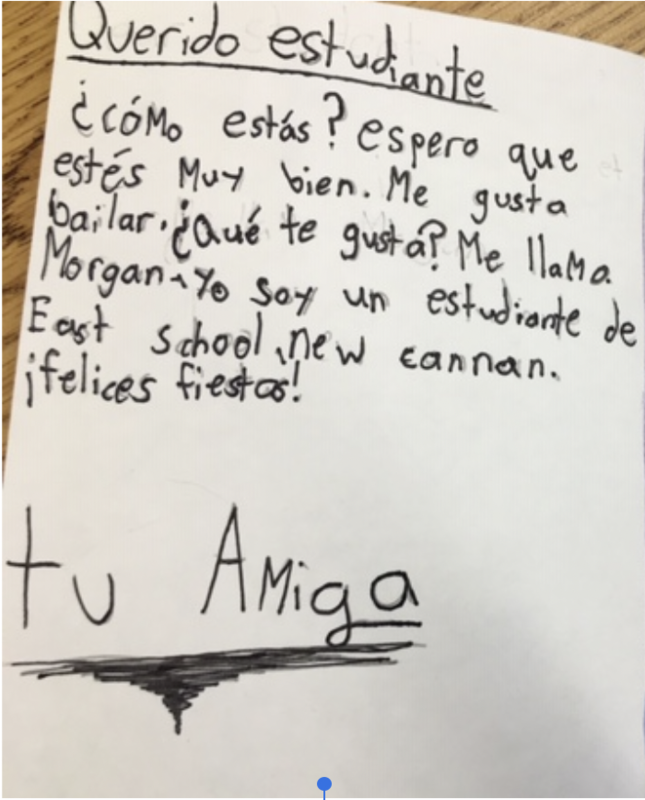 Querido estudiante
¿cóMo estás? espero que
estés Muy bien. Me gusta
bailar. ¿Qué te gusta? Me llaMa
Morgan. Yo soy un estudiante de
East school, new cannan.
¡felices fiestas!
tu AMiga